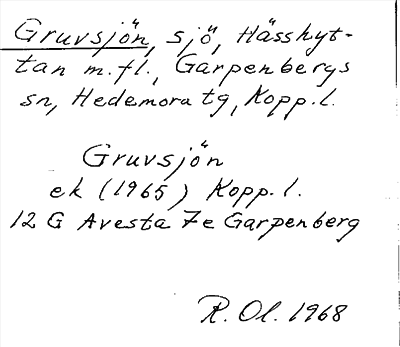 Gruvsjön, sjö, Hässhyt-
tan m.fl., Garpenbergs
sn, Hedemora tg, Kopp.l.
Gruvsjön
ek (1965) Kopp.l.
12 G Avesta 7e Garpenberg
R. Ol. 1968